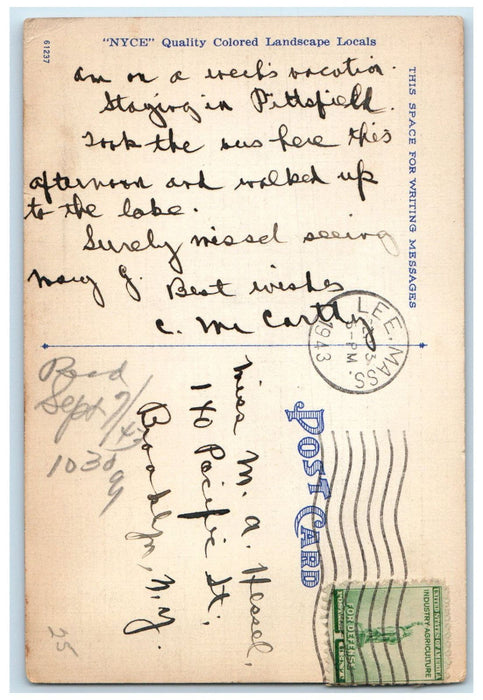 61237
"NYCE" Quality Colored Landscape Locals
THIS SPACE FOR WRITING MESSAGES
am on a week's vacation.
Staying in Pittsfield.
Took the bus here this
afternoon and walked up
to the lake.
Surely missed seeing
Mary G. Best wishes
C. McCarthy
LEE, MASS
PM
1943
POST CARD
Miss M. A. Hessel,
140 Pacific St.
Brooklyn, N.Y.
Recd
Sept 9/
143
1030
25
UNITED STATES OF AMERICA
INDUSTRY AGRICULTURE
FOR DEFENSE